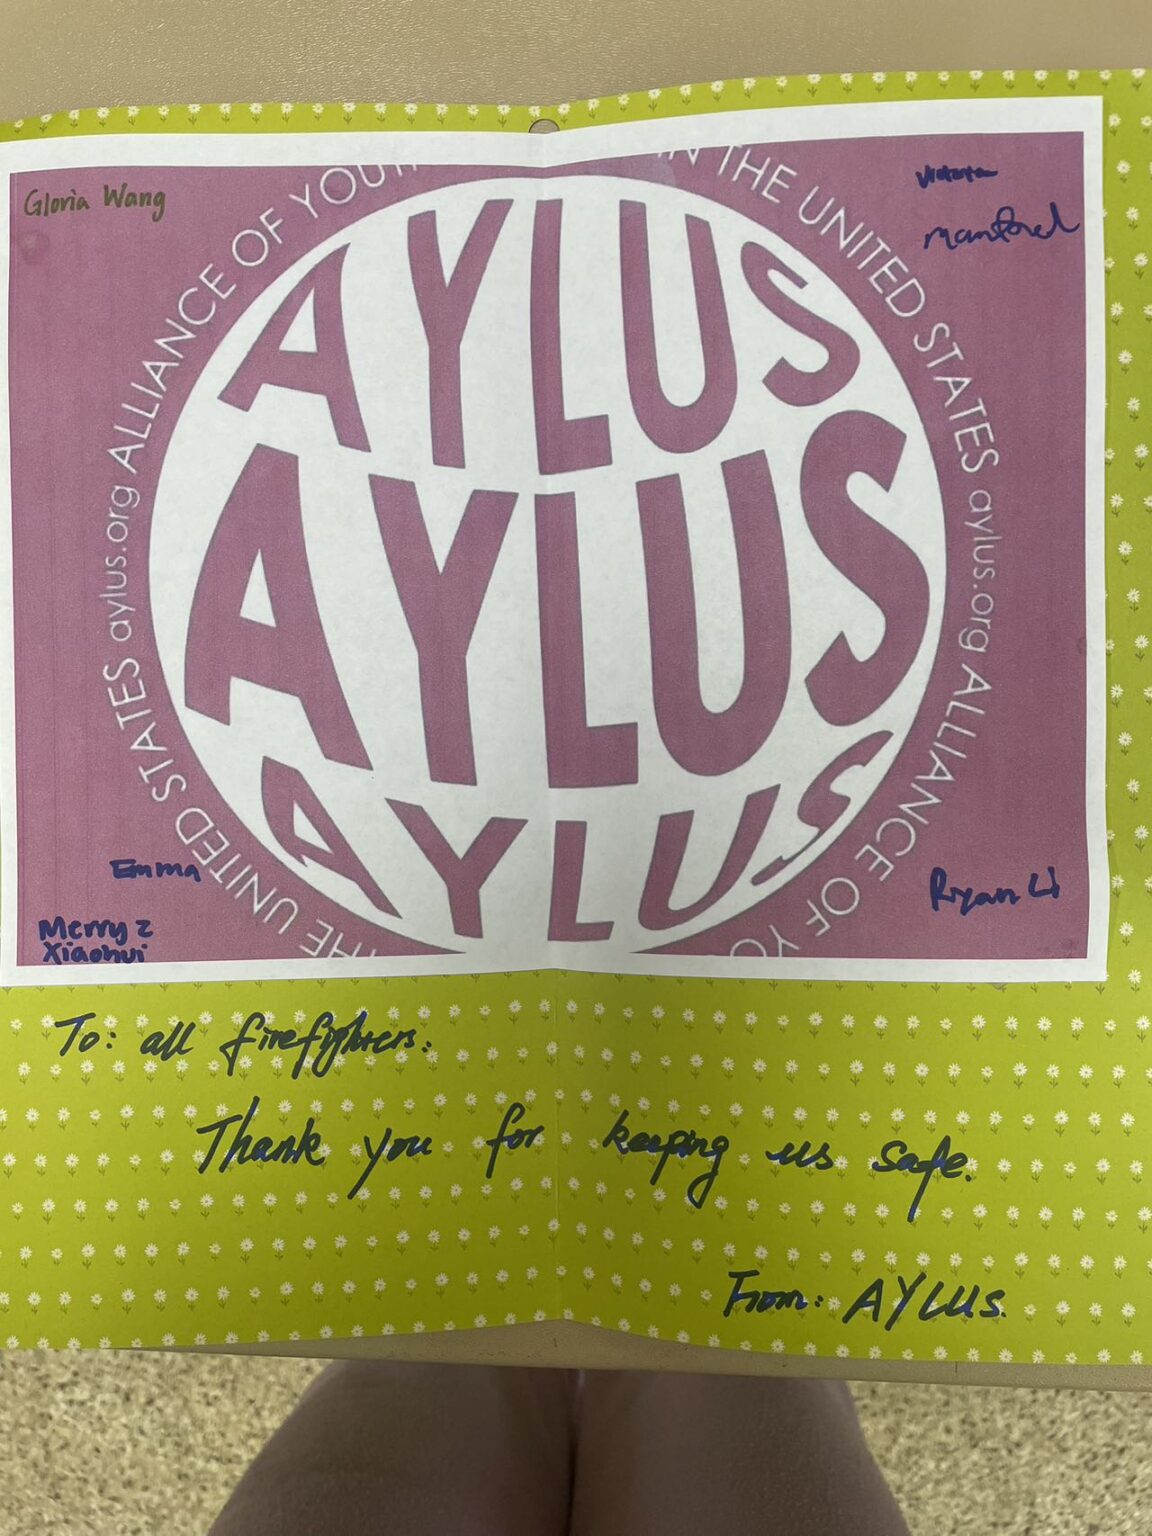 Gloria Wang
Victoria
ALLIANCE OF YOUTH IN THE UNITED STATES aylus.org ALLIANCE OF YO
THE UNITED STATES aylus.org
AYLUS
AYLUS
AYLUS
Emma
Ryan Li
Merry Z
Xiaohui
To: all firefighters:
Thank you for keeping us safe.
From: AYLUS.